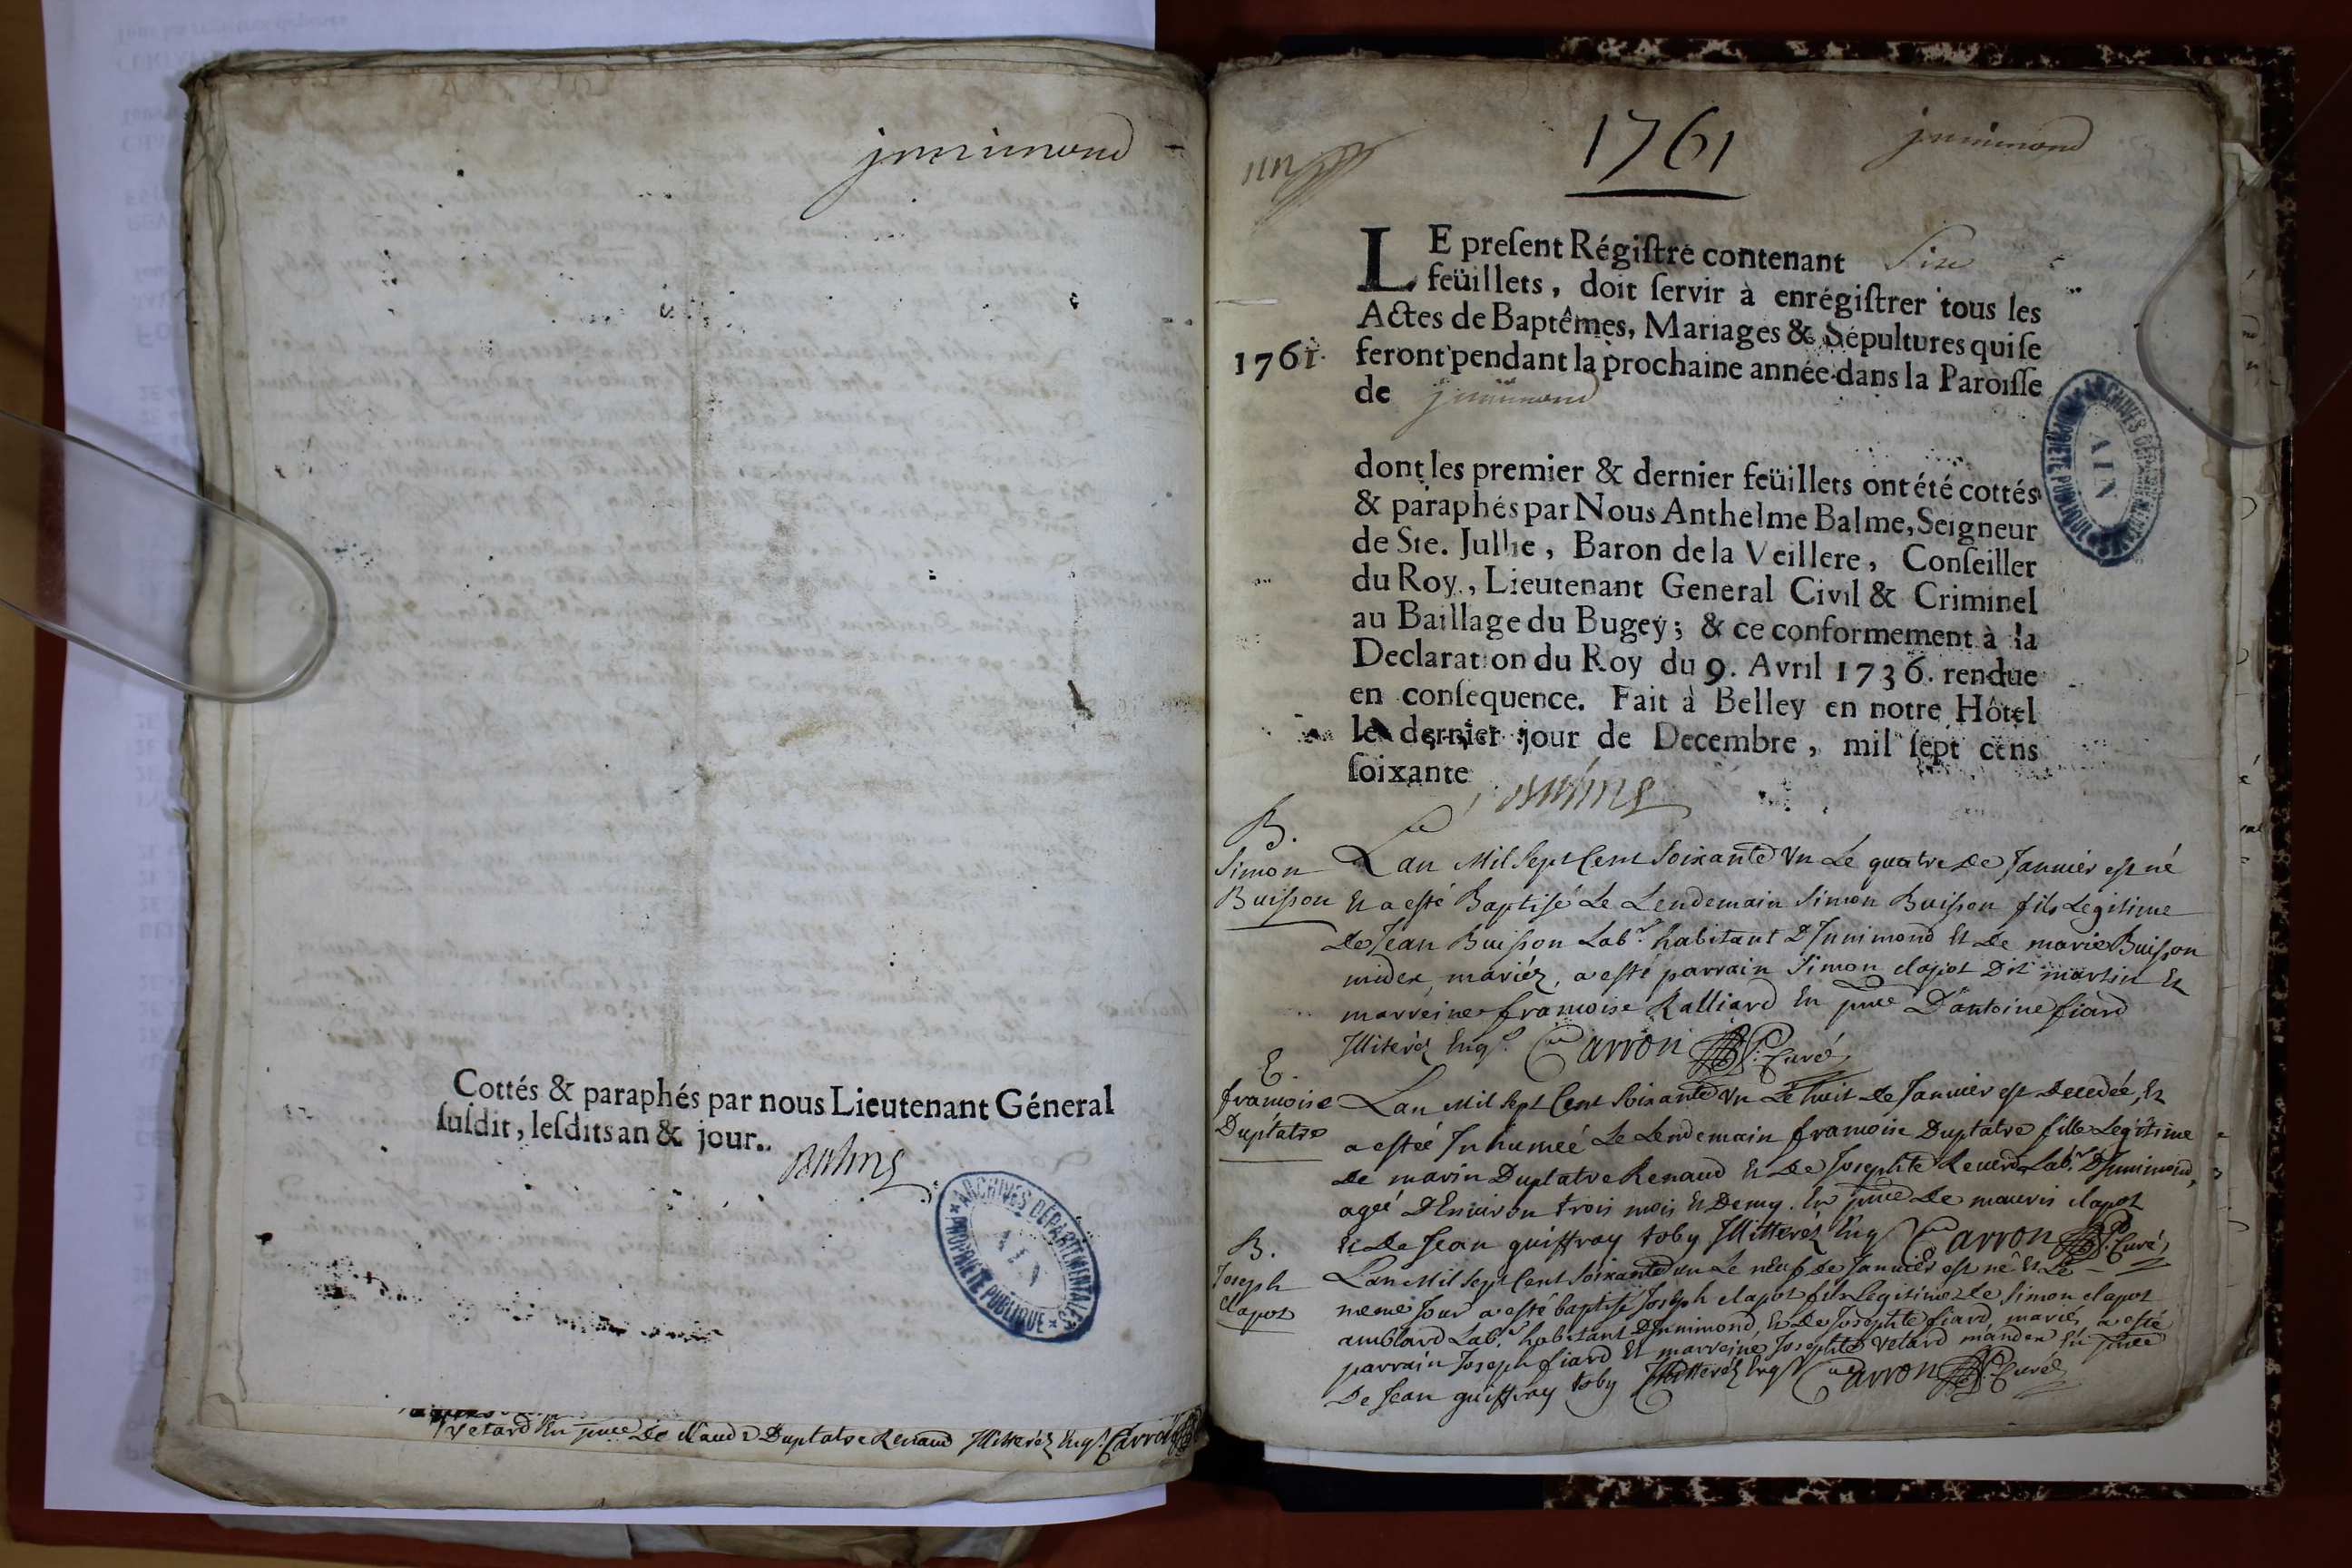 jnnimond
Cottés & paraphés par nous Lieutenant Géneral
ſuſdit, leſdits an & jour..
Balme
ARCHIVES DÉPARTEMENTALES
AIN
PROPRIÉTÉ PUBLIQUE
vetard En pnce de Claude Duplatre Renaud Illiterés Enqs. Carron
1761
jnnimond
LE preſent Régiſtre contenant Six
feüillets, doit ſervir à enrégiſtrer tous les
Actes de Baptêmes, Mariages & Sépultures qui ſe
1761. feront pendant la prochaine année dans la Paroiſſe
de jnnimond
ARCHIVES DÉPARTEMENTALES
AIN
PROPRIÉTÉ PUBLIQUE
dont les premier & dernier feüillets ont été cottés
& paraphés par Nous Anthelme Balme, Seigneur
de Ste. Julhe, Baron de la Veillere, Conſeiller
du Roy, Lieutenant General Civil & Criminel
au Baillage du Bugey; & ce conformement à la
Declaration du Roy du 9. Avril 1736. rendue
en conſequence. Fait à Belley en notre Hôtel
le dernier jour de Decembre, mil ſept cens
ſoixante
Balme
B.
Simon
Buisson
Lan Mil Sept Cent Soixante Un Le quatre de Janvier est né
Et a esté Baptisé Le Lendemain Simon Buisson fils Legitime
de Jean Buisson Labr. habitant D'Innimond Et de marie Buisson
mider, mariéz, a esté parrain Simon clapot Dit martin Et
marreine francoise Ralliard En pnce D'antoine fiard
Illiteréz Enqs. Carron Curé
E.
francoise
Duplatre
Lan Mil Sept Cent Soixante Un Le huit de Janvier est Decedée, Et
a estéé Inhumeé Le Lendemain francoise Duplatre fille Legitime
de marin Duplatre Renaud Et de Josephte Reverd Labr. D'Innimond,
ageé D'Environ trois mois Et Demy. En pnce de mauris clapot
Et de Jean guiffray toby Illitteréz Enqs Carron Curé
B.
Joseph
clapot
Lan Mil Sept Cent Soixante Un Le neuf de Janvier est né Et Le
meme Jour a esté baptisé Joseph clapot fils Legitime de Simon clapot
amblard Labr. habitant D'Innimond, Et de Josephte fiard mariés, a esté
parrain Joseph fiard Et marreine Josephte vetard mander En pnce
De Jean guiffray toby Illitteréz Enqs Carron Curé